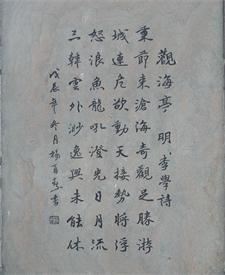 觀海亭 明 李學詩
秉節來滄海奇觀足勝游
城連危欲動天接勢將浮
怒浪魚龍吼澄光日月流
三韓雲外渺逸興未能休
戊辰年冬月楊書